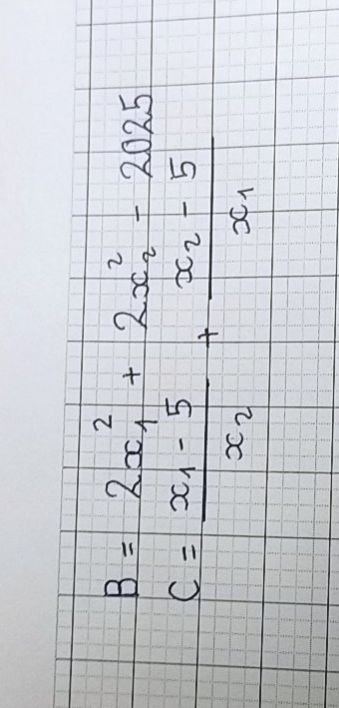 B = 2x₁² + 2x₂² - 2025
C = \frac{x₁ - 5}{x₂} + \frac{x₂ - 5}{x₁}